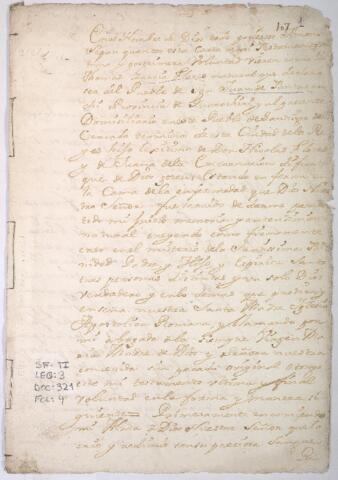 107 1
En el Nombre de Dios todo poderoso Amen
Sepan quantos esta Carta de mi Testamento
y postrimera Voluntad vieren como
Garcia Flores natural que declaro
ser del Pueblo de San Juan de
chi Provincia de y al presente
Domiciliario en este Pueblo de Santiago del
Cercado de esta Ciudad de los Re
yes hijo lexitimo de Don Nicolas Flores
y de Juana de la Encarnacion difuntos
que de Dios gozen estando en
la Cama de la enfermedad que Dios Nu
Señor fue servido de darme pero en
todo mi juicio memoria y entendimiento
natural creyendo como firmemente
creo en el misterio de la Santissima Tri
nidad Padre Hijo y Espiritu Santo
tres personas distintas y un solo Dios
verdadero y en lo demas que
enseña nuestra Santa Madre Yglesia
Appostolica Romana y llamando por
mi abogada a la siempre Virgen Ma
ria Madre de Dios y Señora nuestra
concevida sin pecado original otorgo
este mi testamento ultima y final
voluntad en la forma y manera si
guiente Primeramente encomiendo
mi Alma a Dios Nuestro Señor que la
crio y redimio con su preciosa Sangre
SF-TI
LEG: 3
DOC: 321
FOL: 4